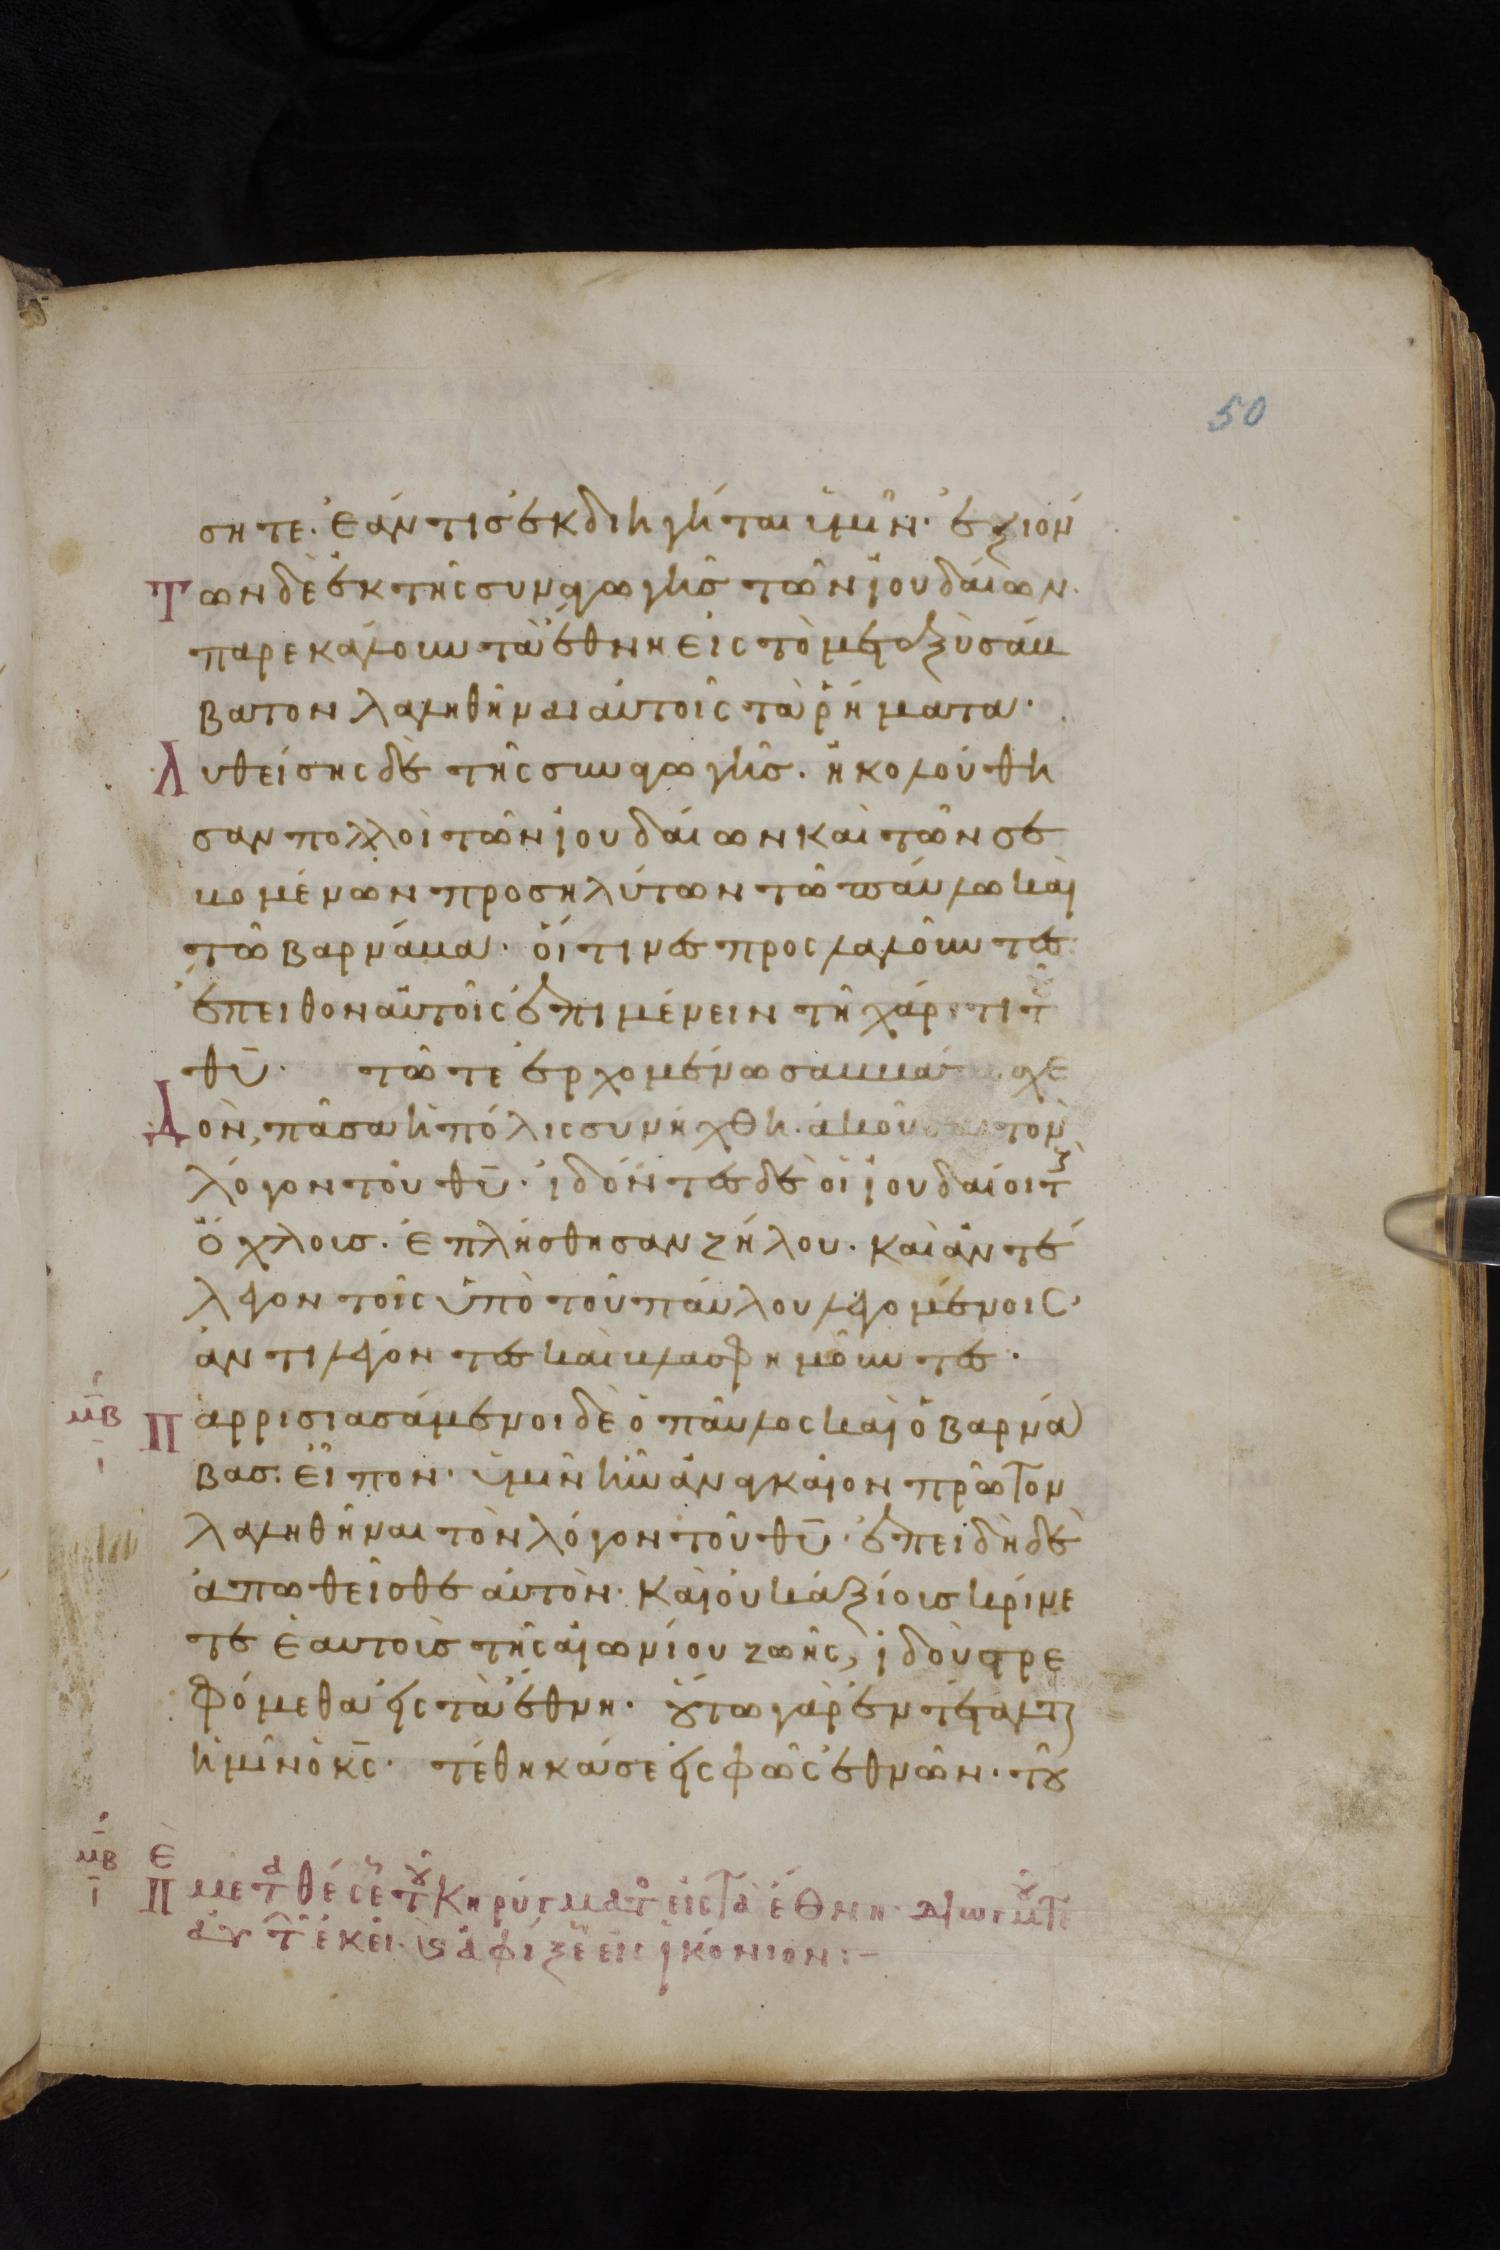 50
σητε· ἐάν τισ ἐκδιηγήται ὑμῖν· ἐξιόν
Των δὲ ἐκ τῆς συναγωγῆσ τῶν ἰουδαίων·
παρεκάλουν τὰ ἔθνη εἰς τὸ μεταξὺ σάβ
βατον λαληθῆναι αὐτοῖς τὰ ῥήματα·
Λυθείσης δὲ τῆς συναγωγῆσ· ἠκολούθη
σαν πολλοὶ τῶν ἰουδαίων καὶ τῶν σε
βομένων προσηλύτων τῶ παύλω καὶ
τῶ βαρνάβα· οἵτινεσ προςλαλοῦντεσ
ἔπειθον αὐτοῖς ἐπιμένειν τῆ χάριτι τ̑
θῡ· τῶ τε ἐρχομένω σαββάτ χε
Δὸν, πᾶσα ἡ πόλις συνήχθη· ἀκοῦ τὸν
λόγον τοῦ θῡ· ἰδόντεσ δὲ οἱ ἰουδαίοι τ
ὄχλουσ· ἐπλήσθησαν ζήλου· καὶ ἀντέ
λεγον τοῖς ὑπὸ τοῦ παύλου λεγομένοις·
ἀντιλέγοντεσ καὶ βλασφημοῦντεσ·
μ̅β̅ Παρρισιασάμενοι δὲ ὁ παῦλος καὶ ὁ βαρνά
ι̅ βασ· εἶπον· ὑμῖν ἦν ἀναγκαῖον πρῶτον
λαληθῆναι τὸν λόγον τοῦ θῡ· ἐπειδὴ δὲ
ἀπωθεῖσθε αὐτὸν· καὶ οὐκ ἀξίουσ κρίνε
τε ἑαυτοὺσ τῆς αἰωνίου ζωῆς, ἰδοὺ στρε
φόμεθα εἰς τὰ ἔθνη· οὕτω γὰρ ἐντέταλτ
ἡμῖν ὁ κ̅ς̅· τέθηκά σε εἰς φῶς ἐθνῶν· τοῦ
μ̅β̅ ἐ
ι̅ Π μετ θέσε τ κηρύγματ εἰς τὰ ἔθνη· διωγμ τε
αὐτ ἐκεῖ· ἀφιξε εἰς ἰκόνιον:–